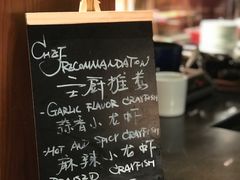 CHEF
RECOMMANDATION
主厨推荐
- GARLIC FLAVOR CRAYFISH
蒜香小龙虾
- HOT AND SPICY CRAYFISH
麻辣小龙虾
CRAYFISH